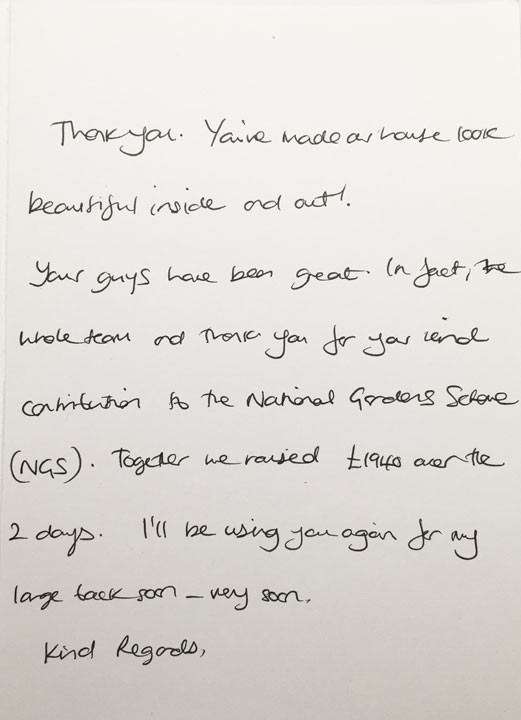 Thank you. You've made our house look
beautiful inside and out!.
Your guys have been great. In fact, the
whole team and thank you for your kind
contribution to the National Gardens Scheme
(NGS). Together we raised £1940 over the
2 days. I'll be using you again for my
large back soon – very soon.
Kind Regards,